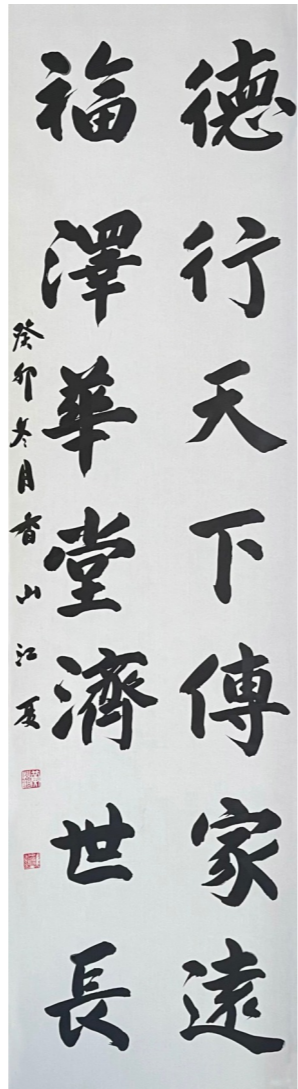 德行天下傳家遠
福澤華堂濟世長
癸卯冬月香山江夏